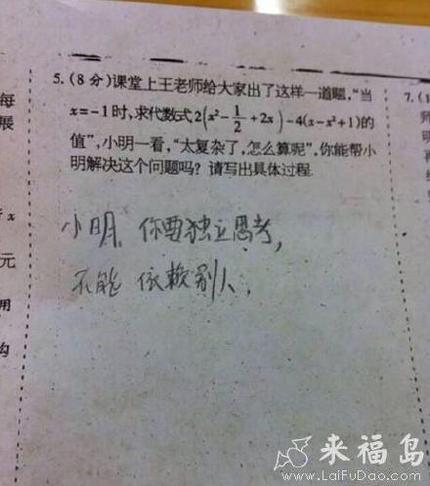 5.(8分)课堂上王老师给大家出了这样一道题,“当
x=-1时,求代数式2(x²-1/2+2x)-4(x-x²+1)的
值”,小明一看,“太复杂了,怎么算呢”,你能帮小
明解决这个问题吗?请写出具体过程.
小明、你要独立思考,
不能 依赖别人.
每
展
x
元
用
沟
7.(1
来福岛
www.LaiFuDao.com